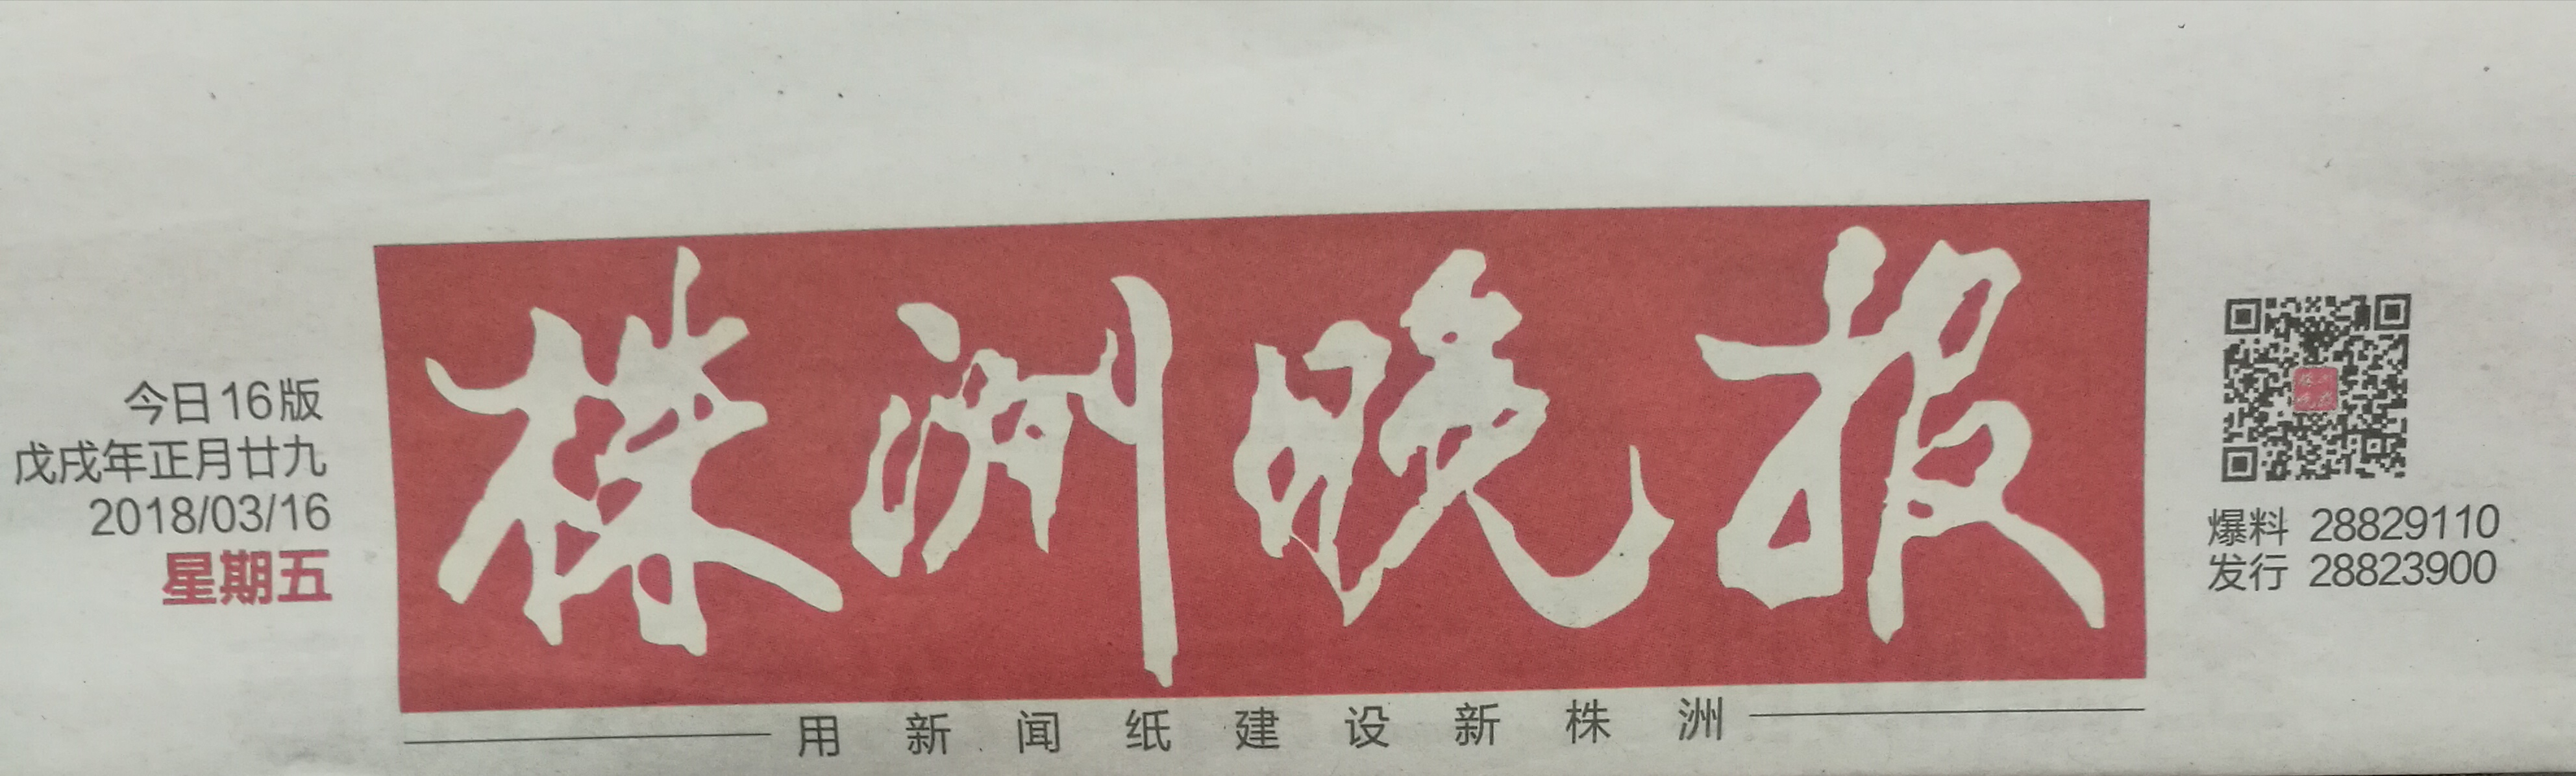 今日16版
戊戌年正月廿九
2018/03/16
星期五
株洲晚报
用新闻纸建设新株洲
爆料 28829110
发行 28823900